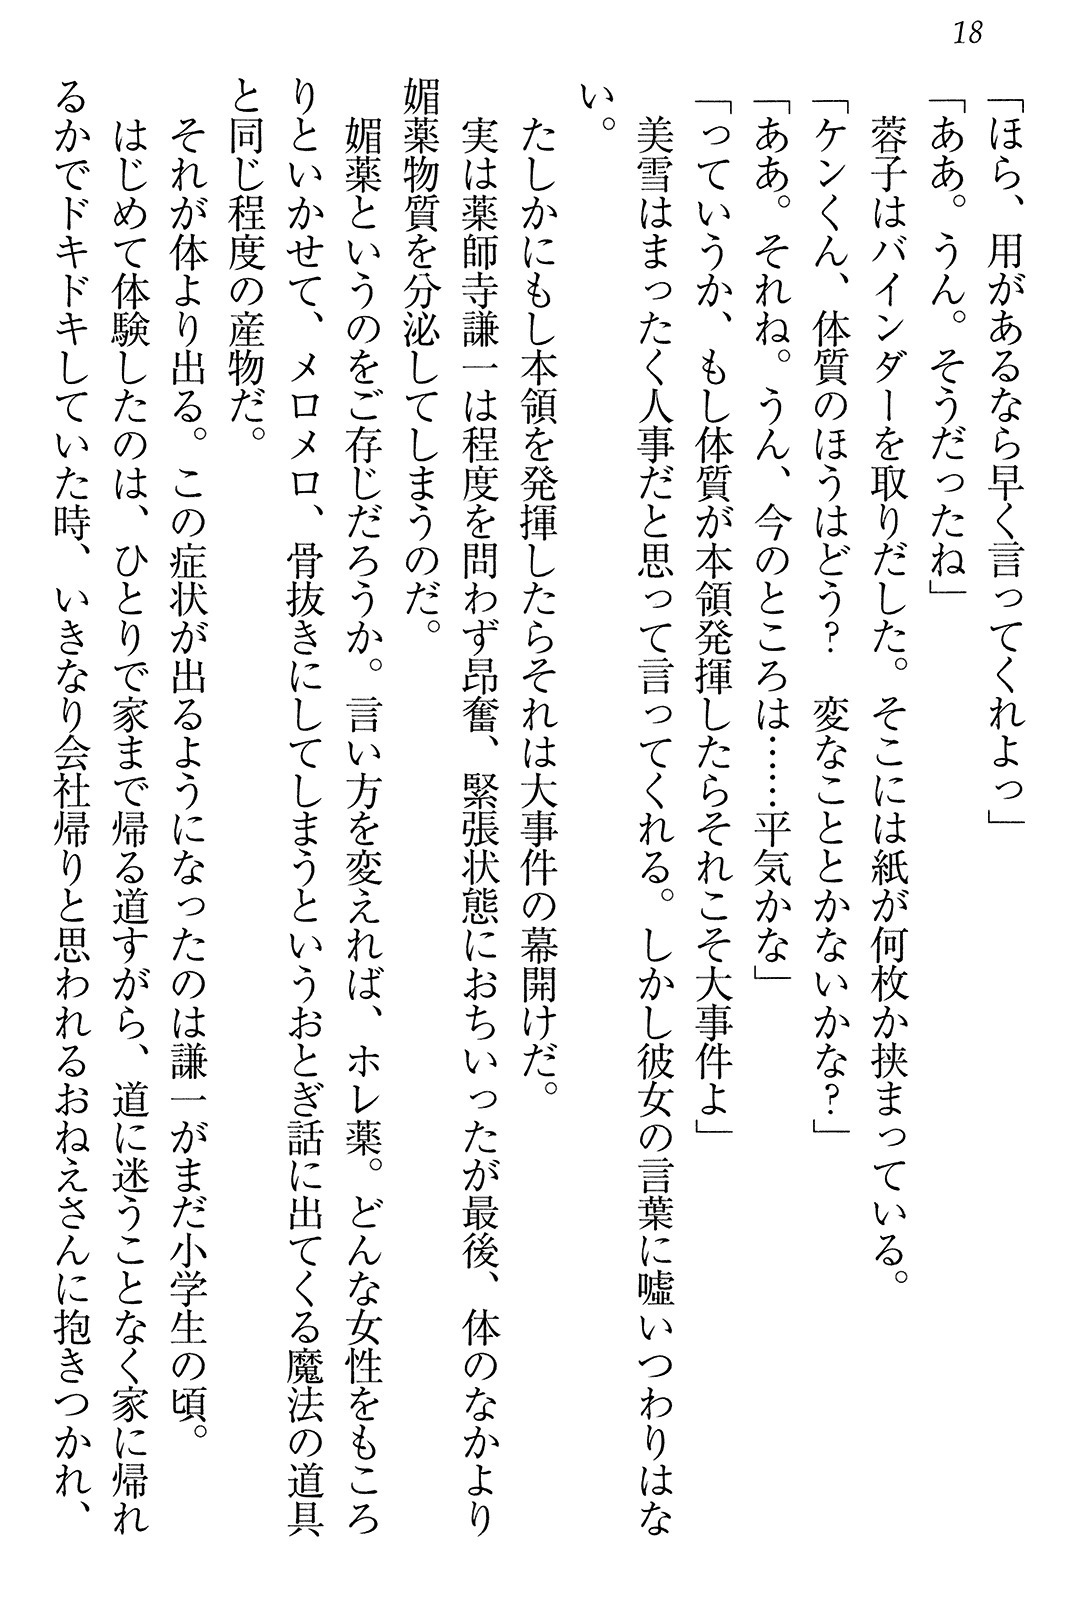 18
「ほら、用があるなら早く言ってくれよっ」
「ああ。うん。そうだったね」
蓉子はバインダーを取りだした。そこには紙が何枚か挟まっている。
「ケンくん、体質のほうはどう？　変なこととかないかな？」
「ああ。それね。うん、今のところは……平気かな」
「っていうか、もし体質が本領発揮したらそれこそ大事件よ」
美雪はまったく人事だと思って言ってくれる。しかし彼女の言葉に嘘いつわりはな
い。
たしかにもし本領を発揮したらそれは大事件の幕開けだ。
実は薬師寺謙一は程度を問わず昂奮、緊張状態におちいったが最後、体のなかより
媚薬物質を分泌してしまうのだ。
媚薬というのをご存じだろうか。言い方を変えれば、ホレ薬。どんな女性をもころ
りといかせて、メロメロ、骨抜きにしてしまうというおとぎ話に出てくる魔法の道具
と同じ程度の産物だ。
それが体より出る。この症状が出るようになったのは謙一がまだ小学生の頃。
はじめて体験したのは、ひとりで家まで帰る道すがら、道に迷うことなく家に帰れ
るかでドキドキしていた時、いきなり会社帰りと思われるおねえさんに抱きつかれ、